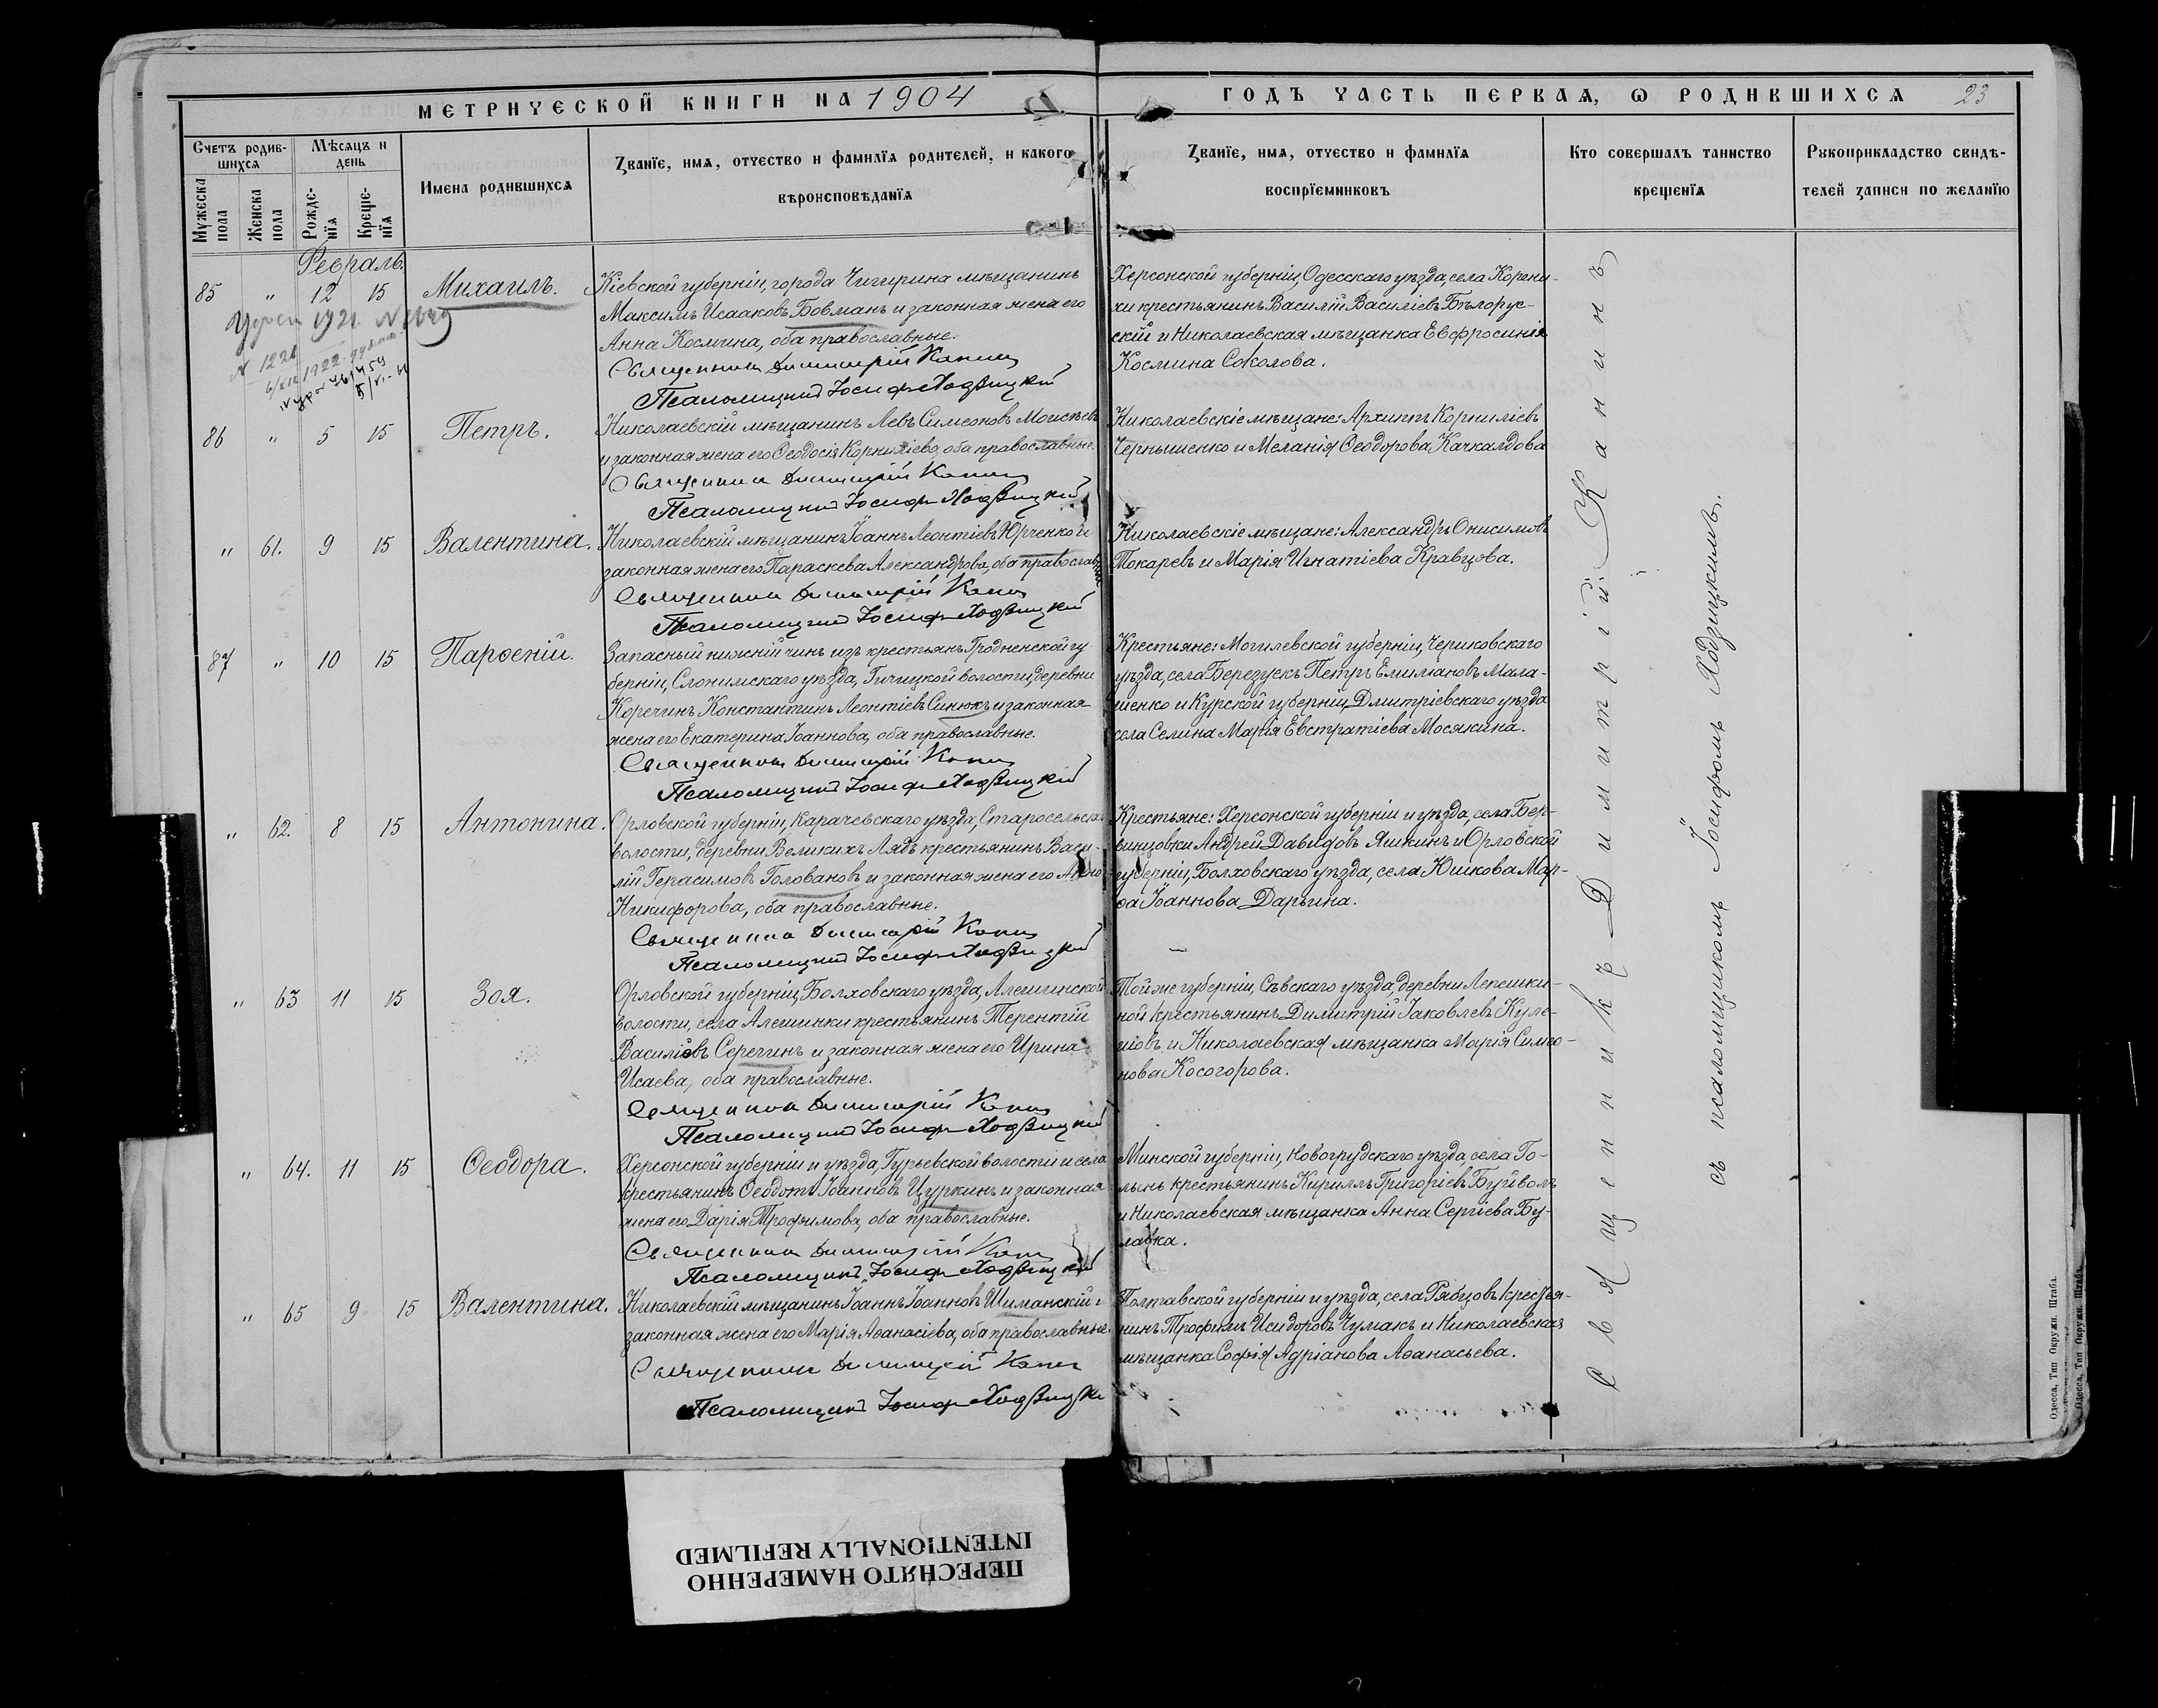 МЕТРИЧЕСКОЙ КНИГИ НА 1904
ГОДЪ ЧАСТЬ ПЕРВАЯ, Ѡ РОДИВШИХСЯ 23
Счетъ родив-
шихся
Мѣсяцъ и
день
Имена родившихся
Званїе, имя, отчество и фамилїя родителей, и какого
вѣроисповѣданїя
Мужеска
пола
Женска
пола
Рожде-
нїя
Креще-
нїя
Званїе, имя, отчество и фамилїя
воспрїемниковъ
Кто совершалъ таинство
крещенїя
Рукоприкладство свидѣ-
телей записи по желанїю
Февраль.
85 " 12 15 Михаилъ.
Кіевской губерніи, города Чигирина мѣщанинъ
Максимъ Исааковъ Бовманъ и законная жена его
Анна Космина, оба православные.
Священникъ Димитрій Канин
Псаломщикъ Іосифъ Ходзицкій
Херсонской губерніи, Одесскаго уѣзда, села Корени-
хи крестьянинъ Василій Василіевъ Бѣлорус-
скій и Николаевская мѣщанка Евфросинія
Космина Соколова.
1921
N 1221
1922
86 " 5 15 Петръ.
Николаевскій мѣщанинъ Левъ Симеоновъ Моисѣевъ
и законная жена его Ѳеодосія Корниліева, оба православные.
Священникъ Димитрій Канин
Псаломщикъ Іосифъ Ходзицкій
Николаевскіе мѣщане: Архиппъ Корниліевъ
Чернышенко и Меланія Ѳеодорова Качкалдова
" 61. 9 15 Валентина.
Николаевскій мѣщанинъ Іоаннъ Леонтіевъ Юрченко и
законная жена его Параскева Александрова, оба православные
Священникъ Димитрій Канин
Псаломщикъ Іосифъ Ходзицкій
Николаевскіе мѣщане: Александръ Онисимовъ
Токаревъ и Марія Игнатіева Кравцова.
87 " 10 15 Парѳеній.
Запасный нижній чинъ изъ крестьянъ Гродненской гу-
берніи, Слонимскаго уѣзда, Гичицкой волости, деревни
Коречинъ Константинъ Леонтіевъ Синюкъ и законная
жена его Екатерина Іоаннова, оба православные.
Священникъ Димитрій Канин
Псаломщикъ Іосифъ Ходзицкій
Крестьяне: Могилевской губерніи, Чериковскаго
уѣзда, села Березускъ Петръ Елимановъ Мала-
шенко и Курской губерніи, Дмитріевскаго уѣзда
села Селина Марія Евстратіева Мосякина.
" 62. 8 15 Антонина.
Орловской губерніи, Карачевскаго уѣзда, Старосельской
волости, деревни Великихъ Лядъ крестьянинъ Васи-
лій Герасимовъ Головановъ и законная жена его
Никифорова, оба православные.
Священникъ Димитрій Канин
Псаломщикъ Іосифъ Ходзицкій
Крестьяне: Херсонской губерніи и уѣзда, села Бер-
винцовки Андрей Давидовъ Яшкинъ и Орловской
губерніи, Болховскаго уѣзда, села Юшкова Мар-
ѳа Іоаннова Дарьина.
" 63 11 15 Зоя.
Орловской губерніи, Болховскаго уѣзда, Алешинской
волости, села Алешинки крестьянинъ Терентій
Василіевъ Серегинъ и законная жена его Ирина
Исаева, оба православные.
Священникъ Димитрій Канин
Псаломщикъ Іосифъ Ходзицкій
Той же губерніи, Сѣвскаго уѣзда, деревни Лепешки-
ной крестьянинъ Димитрій Іаковлевъ Куле-
шовъ и Николаевская мѣщанка Марія Симео-
нова Косогорова.
" 64. 11 15 Ѳеодора.
Херсонской губерніи и уѣзда, Гурьевской волости и села
крестьянинъ Ѳеодотъ Іоанновъ Цуркинъ и законная
жена его Дарія Трофимова, оба православные.
Священникъ Димитрій Канин
Псаломщикъ Іосифъ Ходзицкій
Минской губерніи, Новогрудскаго уѣзда, села Го-
лынь крестьянинъ Кириллъ Григоріевъ Буйволъ
и Николаевская мѣщанка Анна Сергіева Бу-
лавка.
" 65 9 15 Валентина.
Николаевскій мѣщанинъ Іоаннъ Іоанновъ Шиманскій и
законная жена его Марія Аѳанасіева, оба православные.
Священникъ Димитрій Канин
Псаломщикъ Іосифъ Ходзицкі
Полтавской губерніи и уѣзда, села Рябцовъ крестья-
нинъ Трофимъ Исидоровъ Чумакъ и Николаевская
мѣщанка Софія Адріанова Аѳанасьева.
Священникъ Димитрій Канинъ
съ псаломщикомъ Іосифомъ Ходзицкимъ.
Одесса, Тип Окружн. Штаба.
Одесса, Тип Окружн. Штаба.
ПЕРЕСНЯТО НАМЕРЕННО
INTENTIONALLY REFILMED